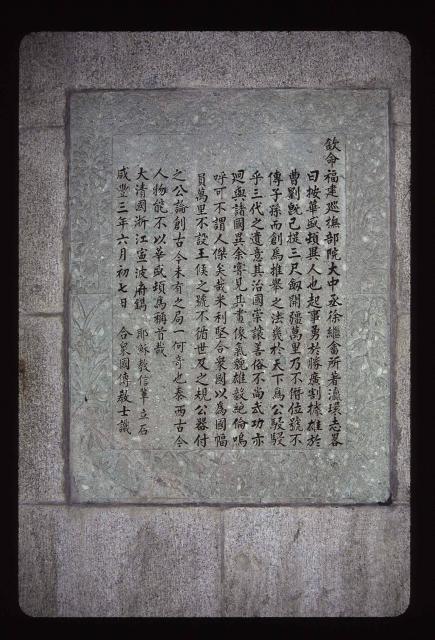 欽命福建巡撫部院大中丞徐繼畬所著瀛環志畧
曰按華盛頓異人也起事勇於勝廣割據雄於
曹劉既已提三尺劍開疆萬里乃不僭位號不
傳子孫而創為推舉之法幾於天下為公駸駸
乎三代之遺意其治國崇讓善俗不尚武功亦
迥與諸國異余嘗見其畫像氣貌雄毅絕倫嗚
呼可不謂人傑矣哉米利堅合衆國以為國幅
員萬里不設王侯之號不循世及之規公器付
之公論創古今未有之局一何奇也泰西古今
人物能不以華盛頓為稱首哉
大清國浙江寧波府鐫 耶穌教信輩立石
咸豐三年六月初七日 合衆國傳教士識